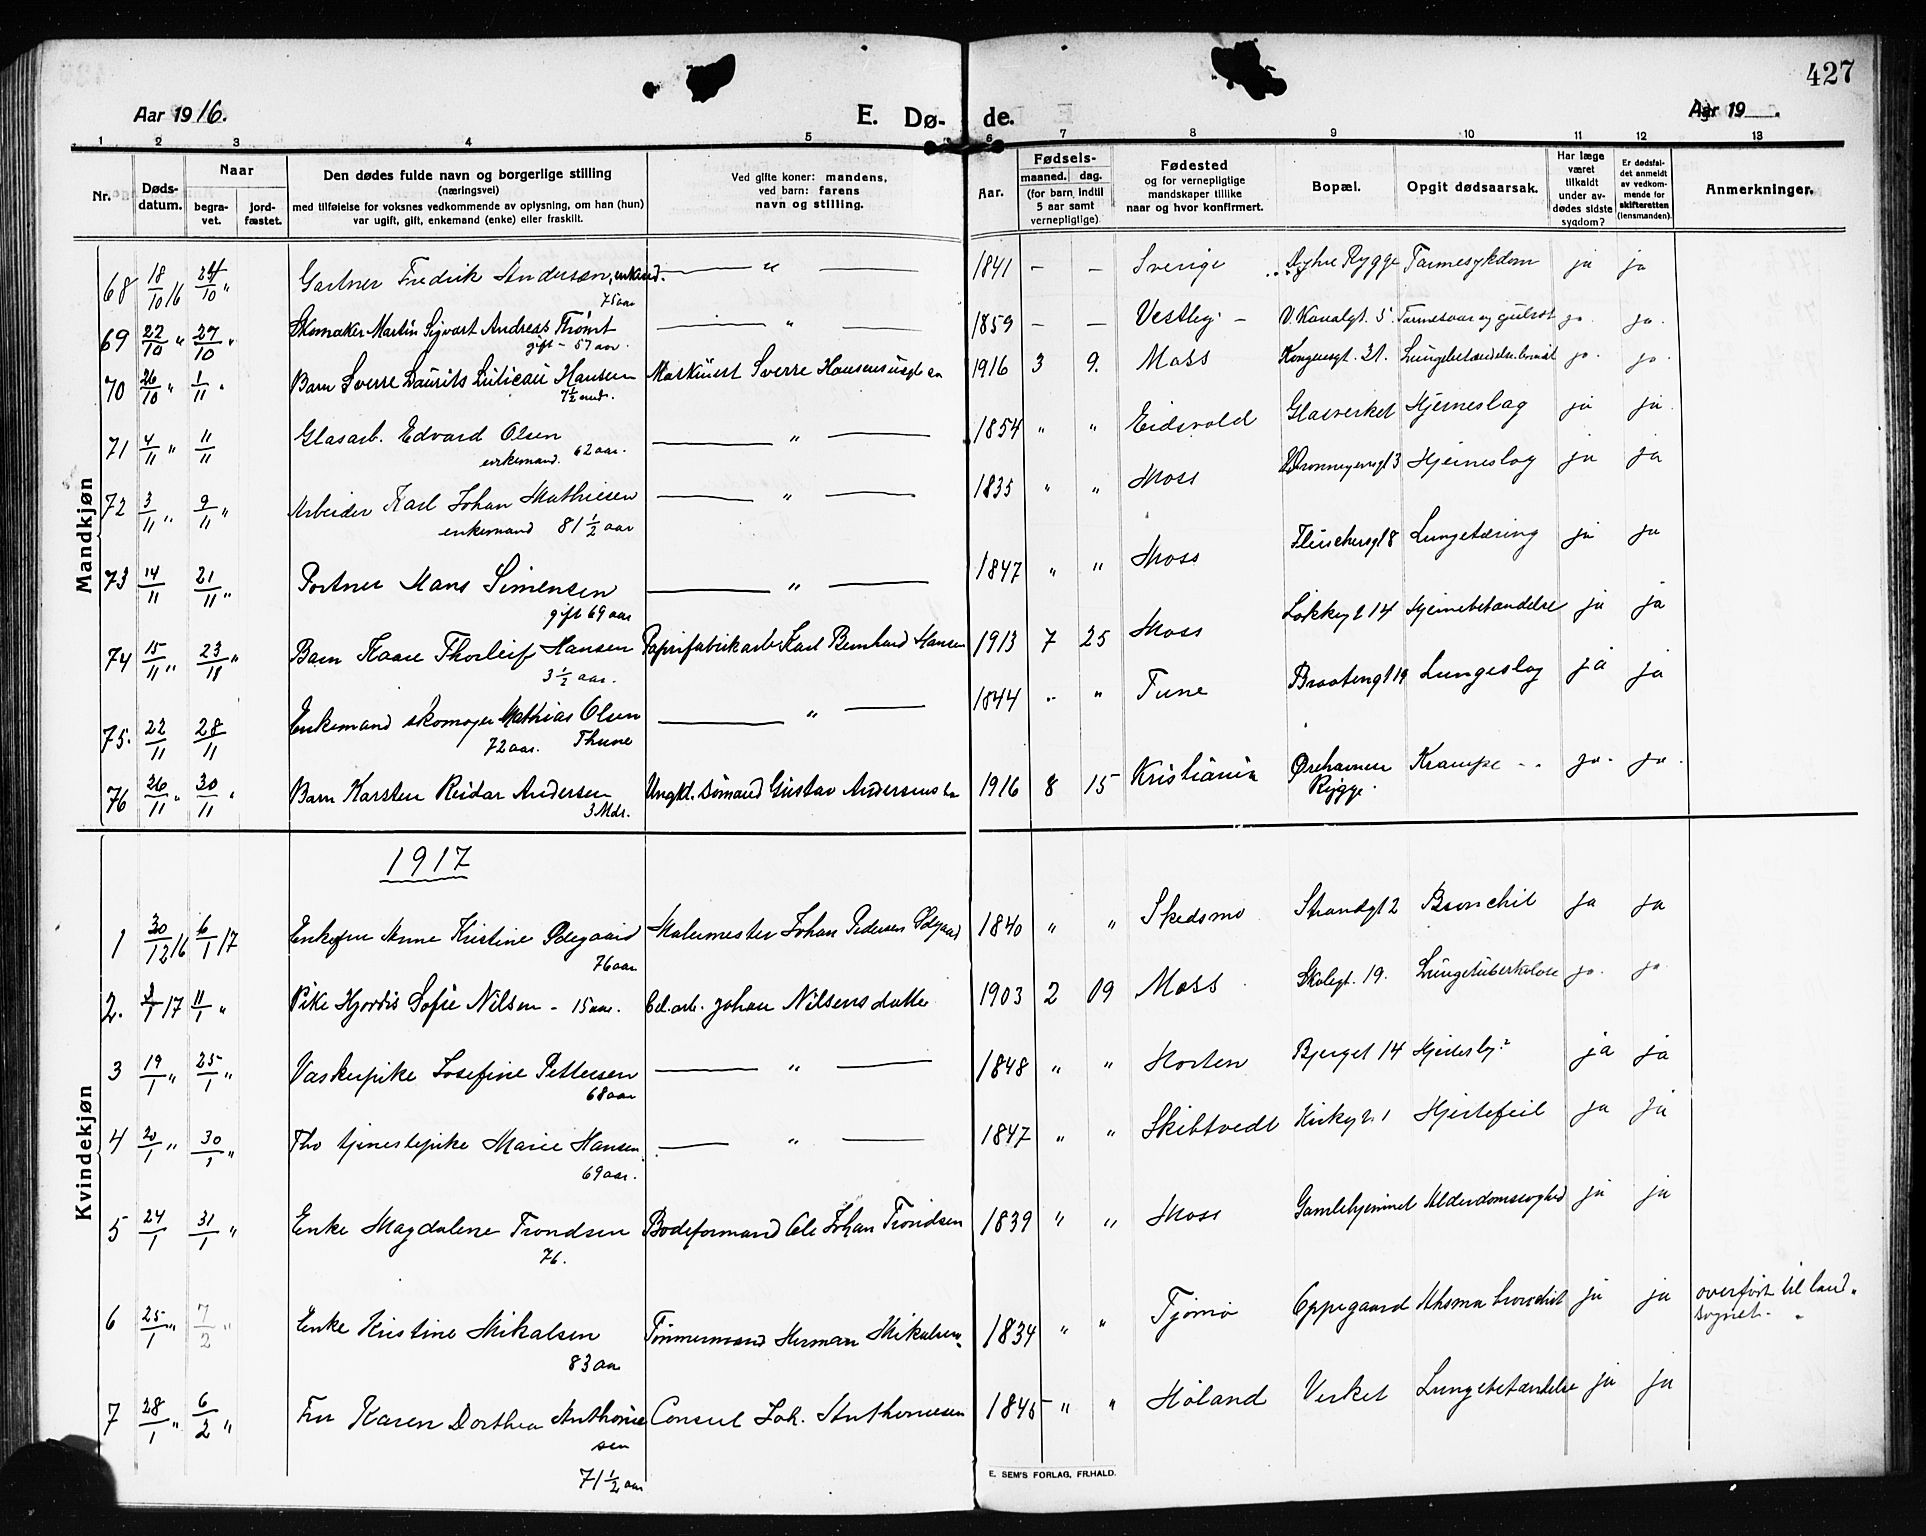 427
Aar 1916.
E. Dø- de.
Aar 19
1 2 3 4 5 6 7 8 9 10 11 12 13
Nr.
Døds-
datum.
Naar
begra-
vet.
jord-
fæstet.
Den dødes fulde navn og borgerlige stilling
(næringsvei)
med tilføielse for voksnes vedkommende av oplysning, om han (hun)
var ugift, gift, enkemand (enke) eller fraskilt.
Ved gifte koner: mandens,
ved barn: farens
navn og stilling.
Aar.
Fødsels-
maaned. dag.
(for barn indtil
5 aar samt
vernepligtige)
Fødested
og for vernepligtige
mandskaper tillike
naar og hvor konfirmert.
Bopæl.
Opgit dødsaarsak.
Har læge
været
tilkaldt
under av-
dødes sidste
sygdom?
Er dødsfal-
det anmeldt
av vedkom-
mende for
skifteretten
(lensmanden).
Anmerkninger.
Mandkjøn
68 18/10 16 24/10 " Gartner Fredrik Andersen, enkemd. — " — 1841 – – Sverige Dyhre Rygge Tarmesykdom ja ja
75 aar
69 22/10 " 27/10 " Skomaker Martin Sigvart Andreas Trømt — " — 1859 – – Vestby – V. Kanalgt. 5 Tarmesaar og gulsot ja. ja.
gift – 57 aar.
70 26/10 " 1/11 " Barn Sverre Laurits Hansen Maskinist Sverre Hansens 1916 3 9. Moss Kongensgt. 31. ja. ja.
7½ mdr.
71 4/11 " 11/11 Glasarb. Edvard Olsen — " — 1854 " " Eidsvold Glasverket Hjerneslag ja ja.
enkemand. 62 aar.
72 3/11 " 9/11 " Arbeider Karl Johan Mathiesen — " — 1835 " " Moss Dronningensgt 3 Hjerneslag ja ja
enkemand 81½ aar
73 14/11 21/11 " Portner Hans Simensen — " — 1847 " " Moss Fleischersgt 8 Lungetæring ja ja
gift 69 aar
74 15/11 " 23/11 " Barn Kaare Thorleif Hansen Papirfabrikarb Karl Bernhard Hansen 1913 7 25 Moss Løkkegt 14 Hjernebetændelse ja ja
3½ aar.
75. 22/11 28/11 Enkemand skomager Mathias Olsen — " — 1844 " " Tune Braatengt 19 Lungeslag ja ja
72 aar. Thune
76 26/11 " 30/11 " Barn Karsten Reidar Andersen Ungkl. sømand Gustav Andersens 1916 8 15 Kristiania Ørehavnen Krampe – . ja. ja.
3 Mdr. Rygge.
1917
Kvindekjøn
1 30/12 16 6/1 17 Enkefru Anne Kristine Ødegaard Malermester Johan Pedersen Ødgaard 1840 " " Skedsmo Strandgt 2 Bronchit ja ja
76 aar
2. 3/1 17 11/1 " Pike Hjordis Sofie Nilsen – 15 aar. Cel. arb. Johan Nilsens datter 1903 2 09 Moss Skolegt. 19. Lungetuberkulose ja. ja.
3 19/1 " 25/1 " Vaskerpike Josefine Pettersen — " — 1848 " " Horten Bjerget 14 ja ja
68 aar
4 20/1 " 30/1 " Fhv tjenestepike Marie Hansen — " — 1847 " " Skibtvedt Kirkegt. 1 Hjertefeil ja ja
69 aar.
5 24/1 31/1 " Enke Magdalene Trondsen Bodeformand Ole Johan Trondsen 1839 " " Moss Gamlehjemmet Alderdomssvaghed ja ja
76.
6 25/1 " 7/2 " Enke Kristine Mikalsen Tømmermand Herman Mikalsen 1834 " " Tjømø Oppegaard Asthma bronchit ja ja overført til land-
83 aar sognet.
7 28/1 " 6/2 " Fru Karen Dorthea Anthonie- Consul Joh. Anthoniesen 1845 " " Høland Verket Lungebetændelse ja ja
sen
71½ aar
E. SEM'S FORLAG, FR.HALD.